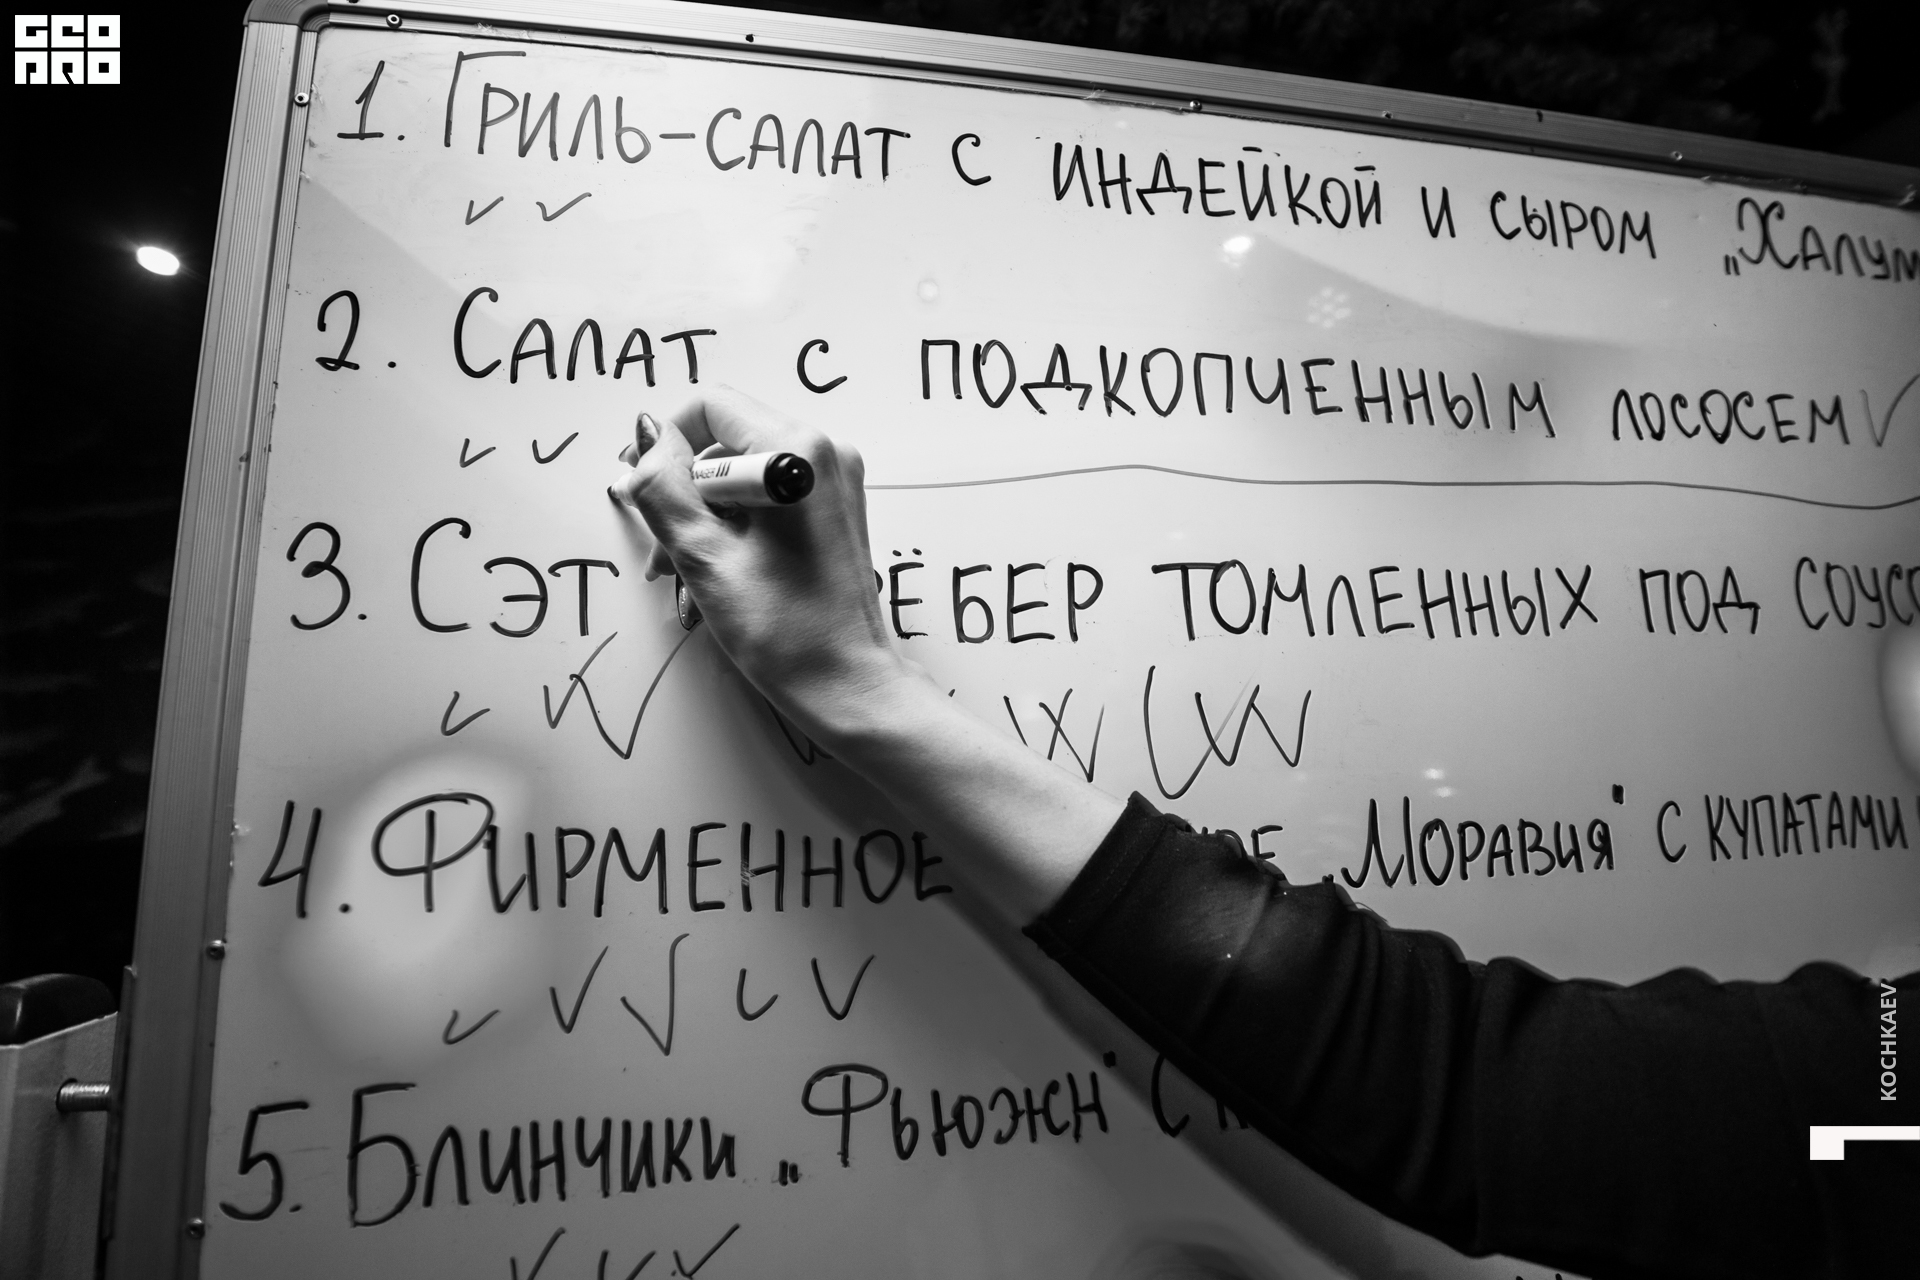 GEO
PRO
1. Гриль-салат с индейкой и сыром „Халум
2. Салат с подкопченным лососем
3. Сэт рёбер томленных под соусо
4. Фирменное „Моравия" с купатами
5. Блинчики „Фьюжн" с
KOCHKAEV